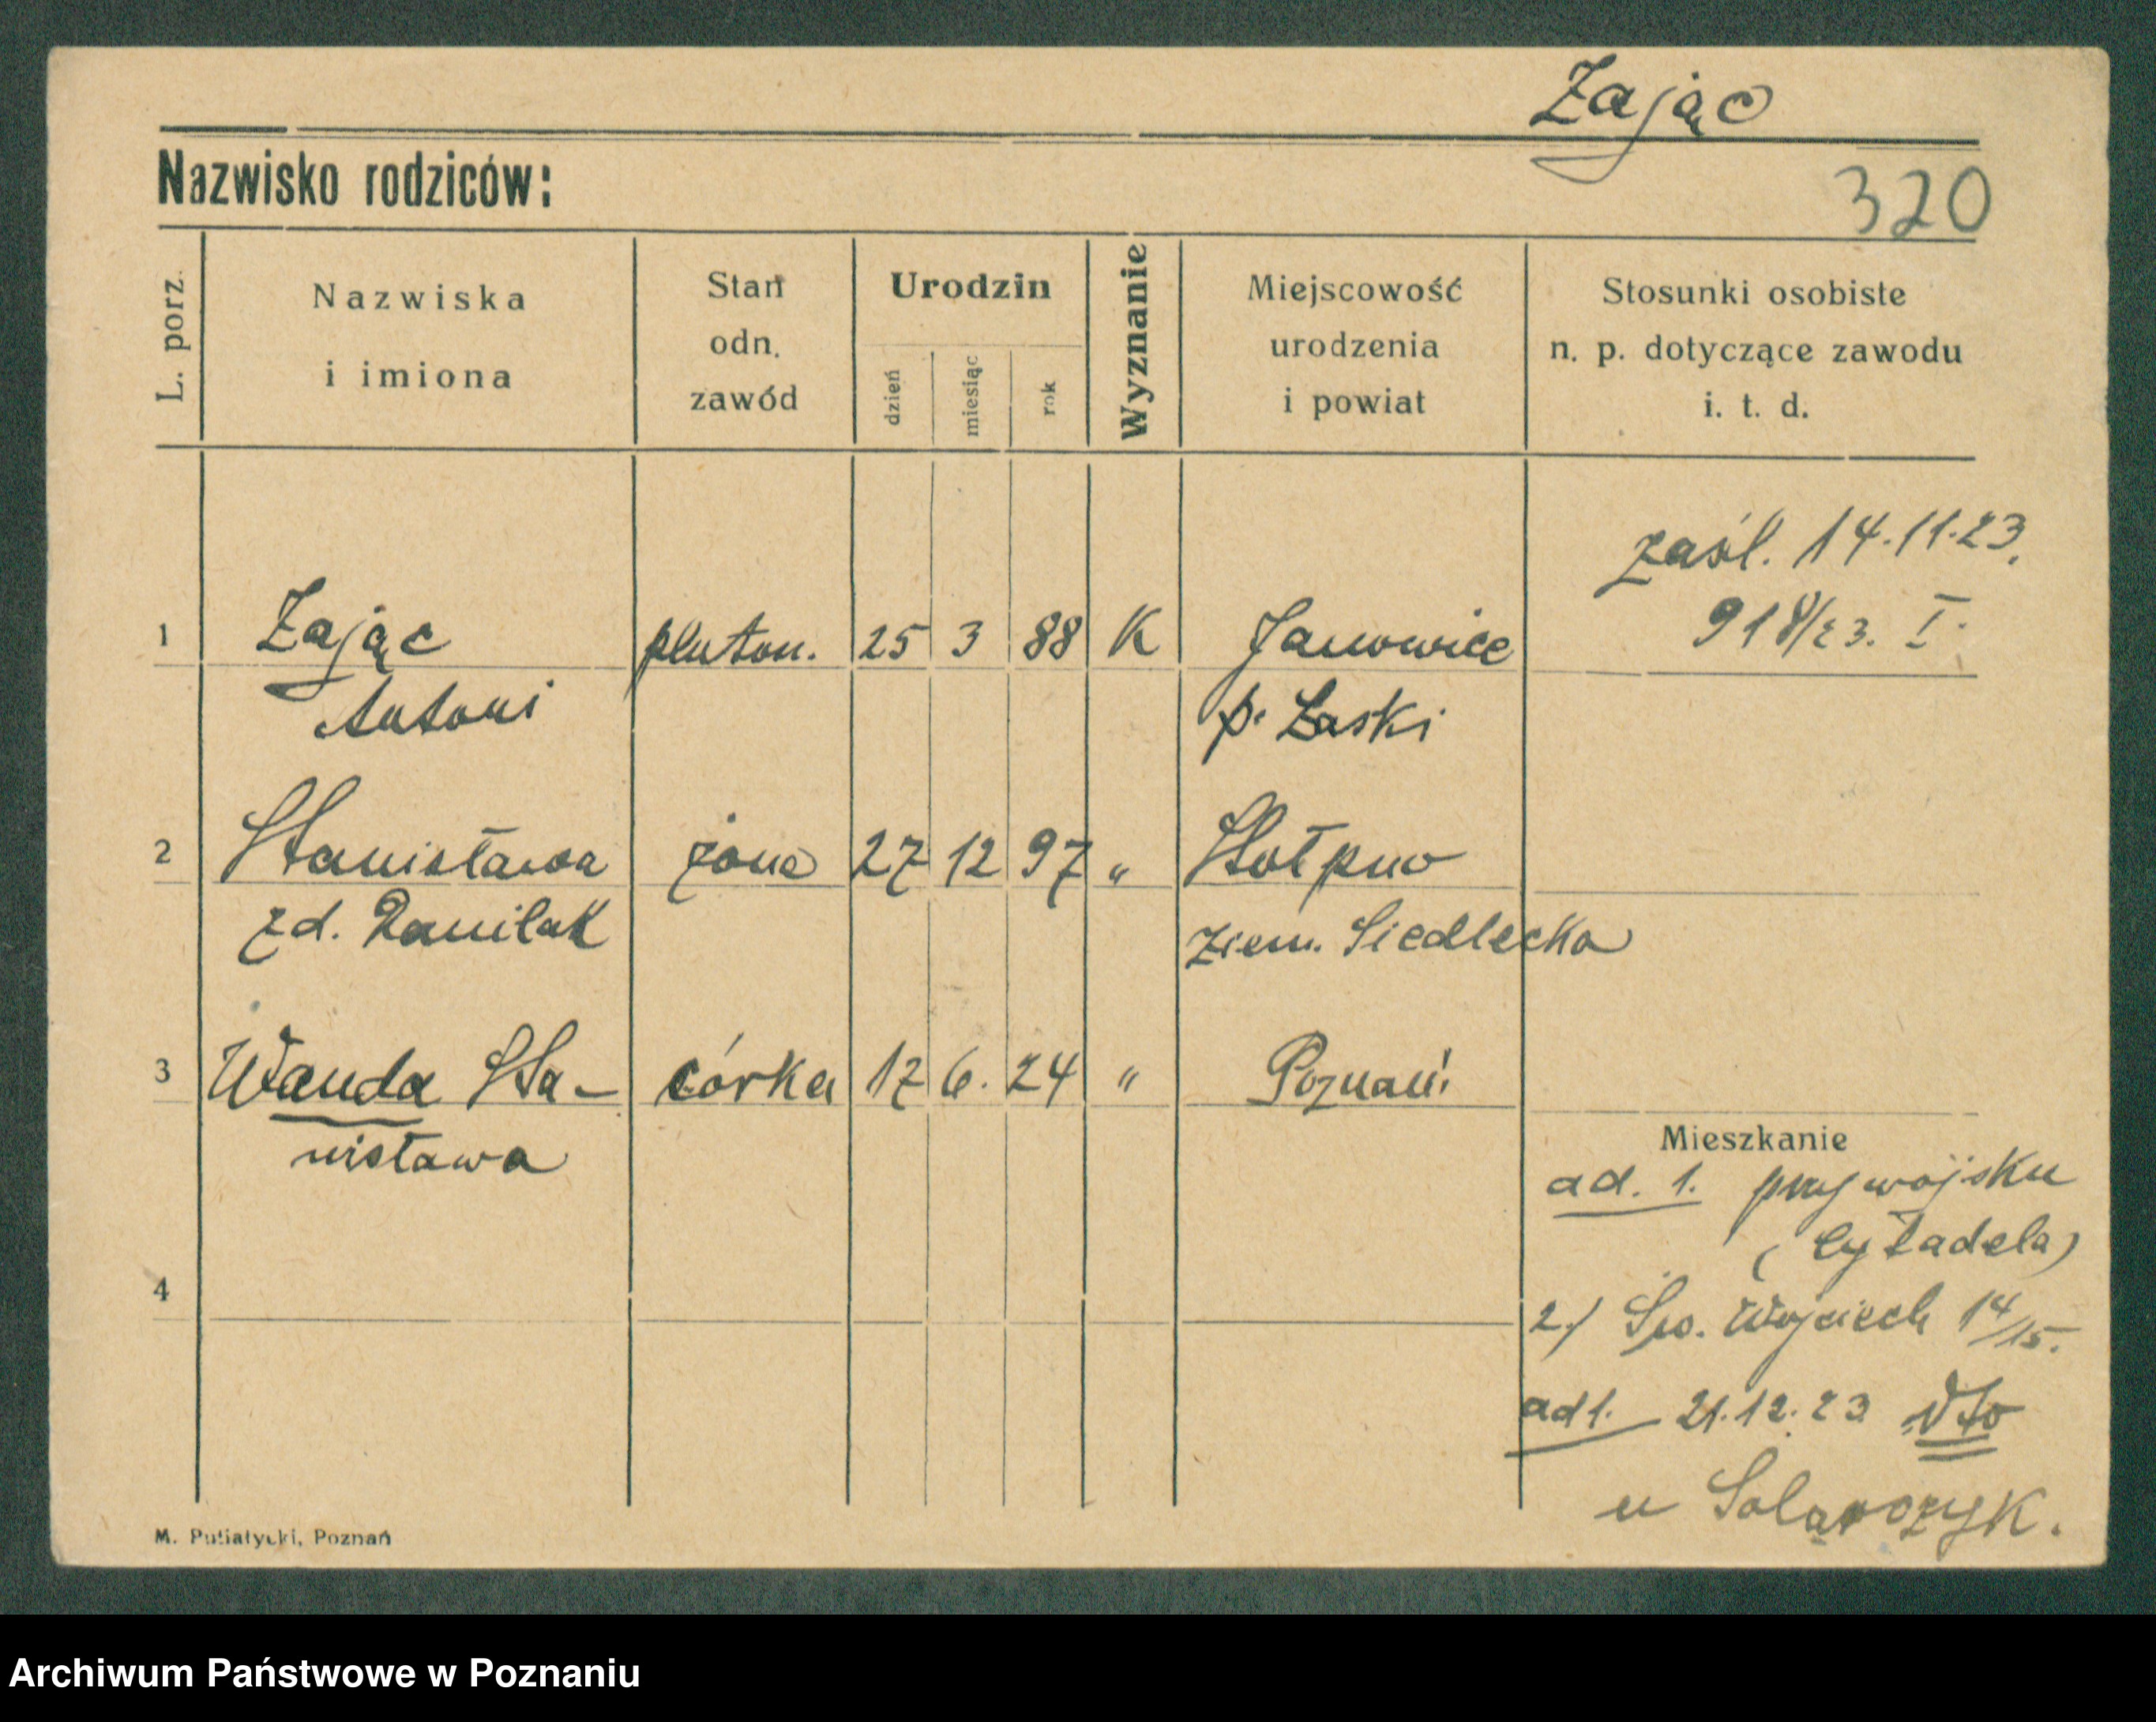 Zając
Nazwisko rodziców:
320
L. porz.
Nazwiska
i imiona
Stan
odn.
zawód
Urodzin
dzień
miesiąc
rok
Wyznanie
Miejscowość
urodzenia
i powiat
Stosunki osobiste
n. p. dotyczące zawodu
i. t. d.
zaśl. 14.11.23.
918/23. I.
1 Zając pluton. 25 3 88 K Janowice
Antoni p. Łaski
2 Stanisława żona 27 12 97 "
zd. Danilak ziem. Siedlecka
3 Wanda Sta- córka 17 6. 24 " Poznań
nisława
Mieszkanie
ad. 1. przy wojsku
(Cytadela)
4
2./ Św. Wojciech 14/15.
ad 1. 21.12.23
u
M. Putiatycki, Poznań
Archiwum Państwowe w Poznaniu